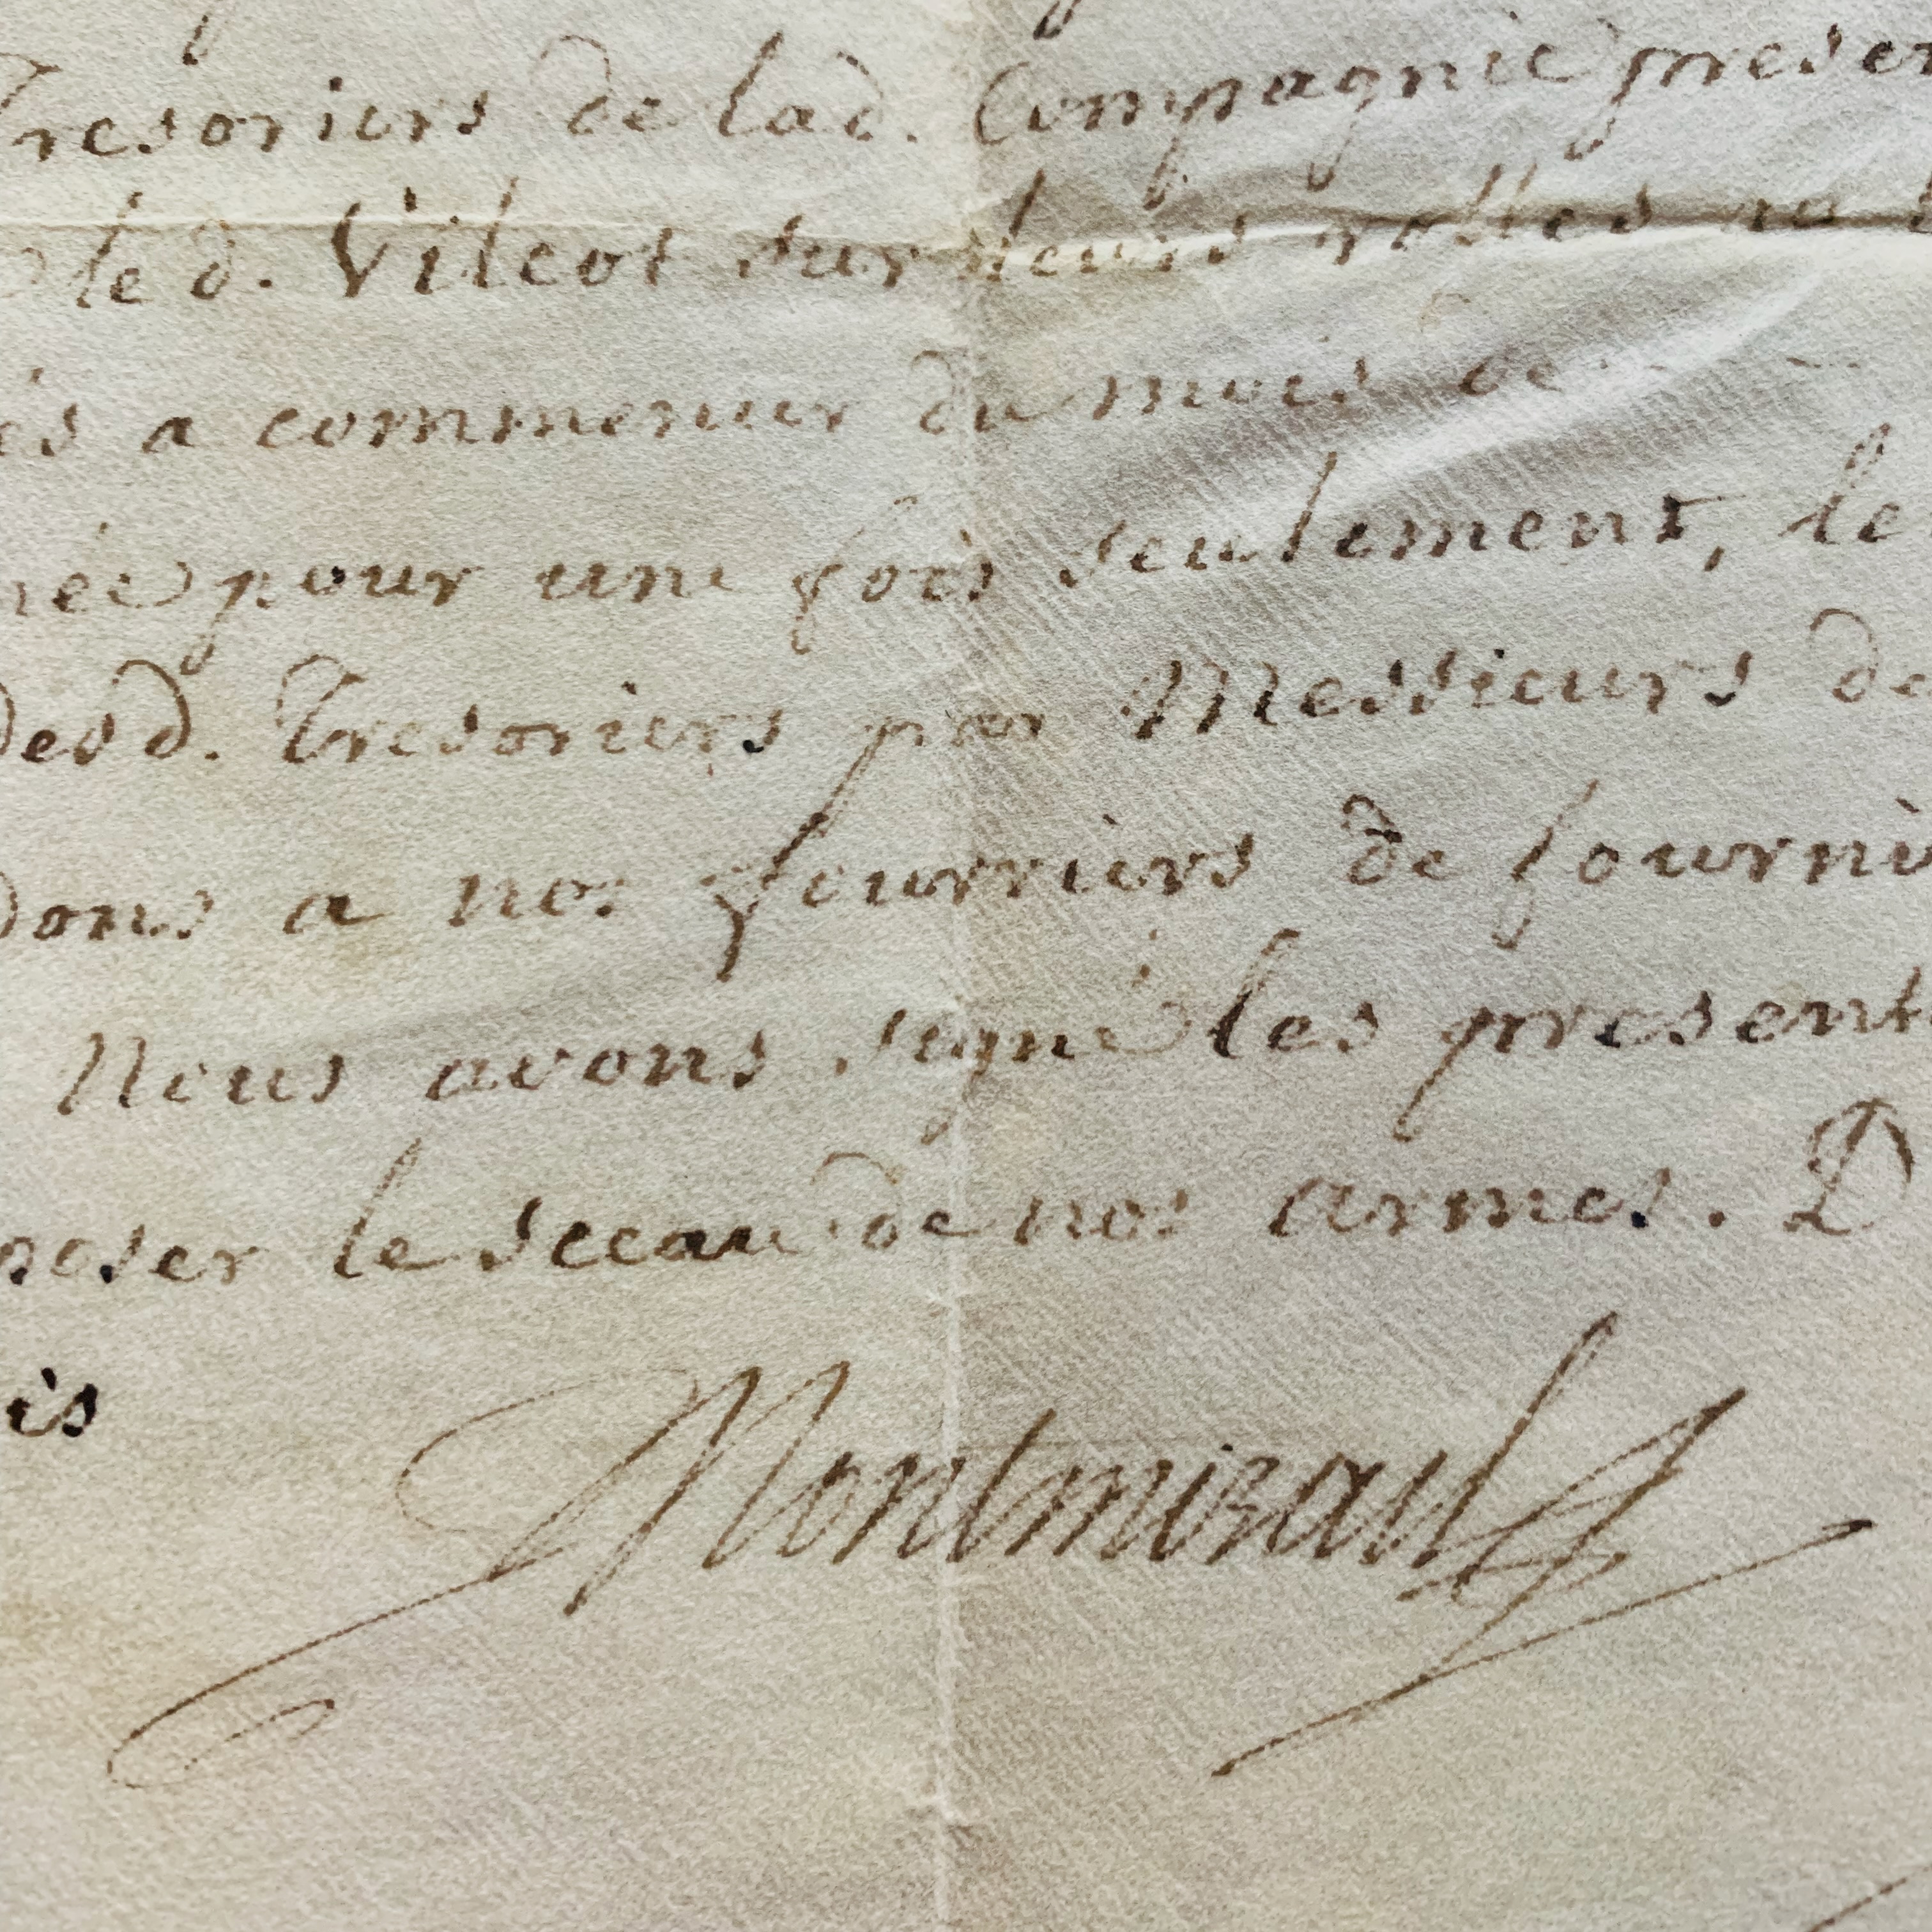 Tresoriers de lad. Compagnie presen
le d. Vilcot sur leurs rolles
és a commencer du mois de
née pour une fois seulement, le
desd. Tresoriers par Messieurs de
dons a nos fourriers de fourni
Nous avons signé les present
poser le sceau de nos armes. D
is
Montmirail